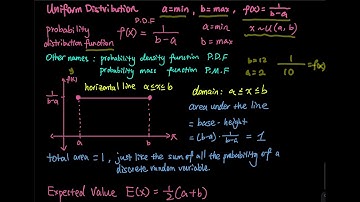 Uniform Distribution a=min, b=max, f(x) = 1/(b-a)
probability distribution function P.D.F f(x) = 1/(b-a) a=min b=max x~U(a,b)
Other names: probability density function P.D.F
probability mass function P.M.F
b=12 a=2 1/10 = f(x)
y f(x)
horizontal line a≤x≤b
1/(b-a)
a b x
domain: a≤x≤b
area under the line
= base · height
= (b-a) · 1/(b-a) = 1
total area = 1, just like the sum of all the probability of a
discrete random variable.
Expected Value E(x) = 1/2(a+b)